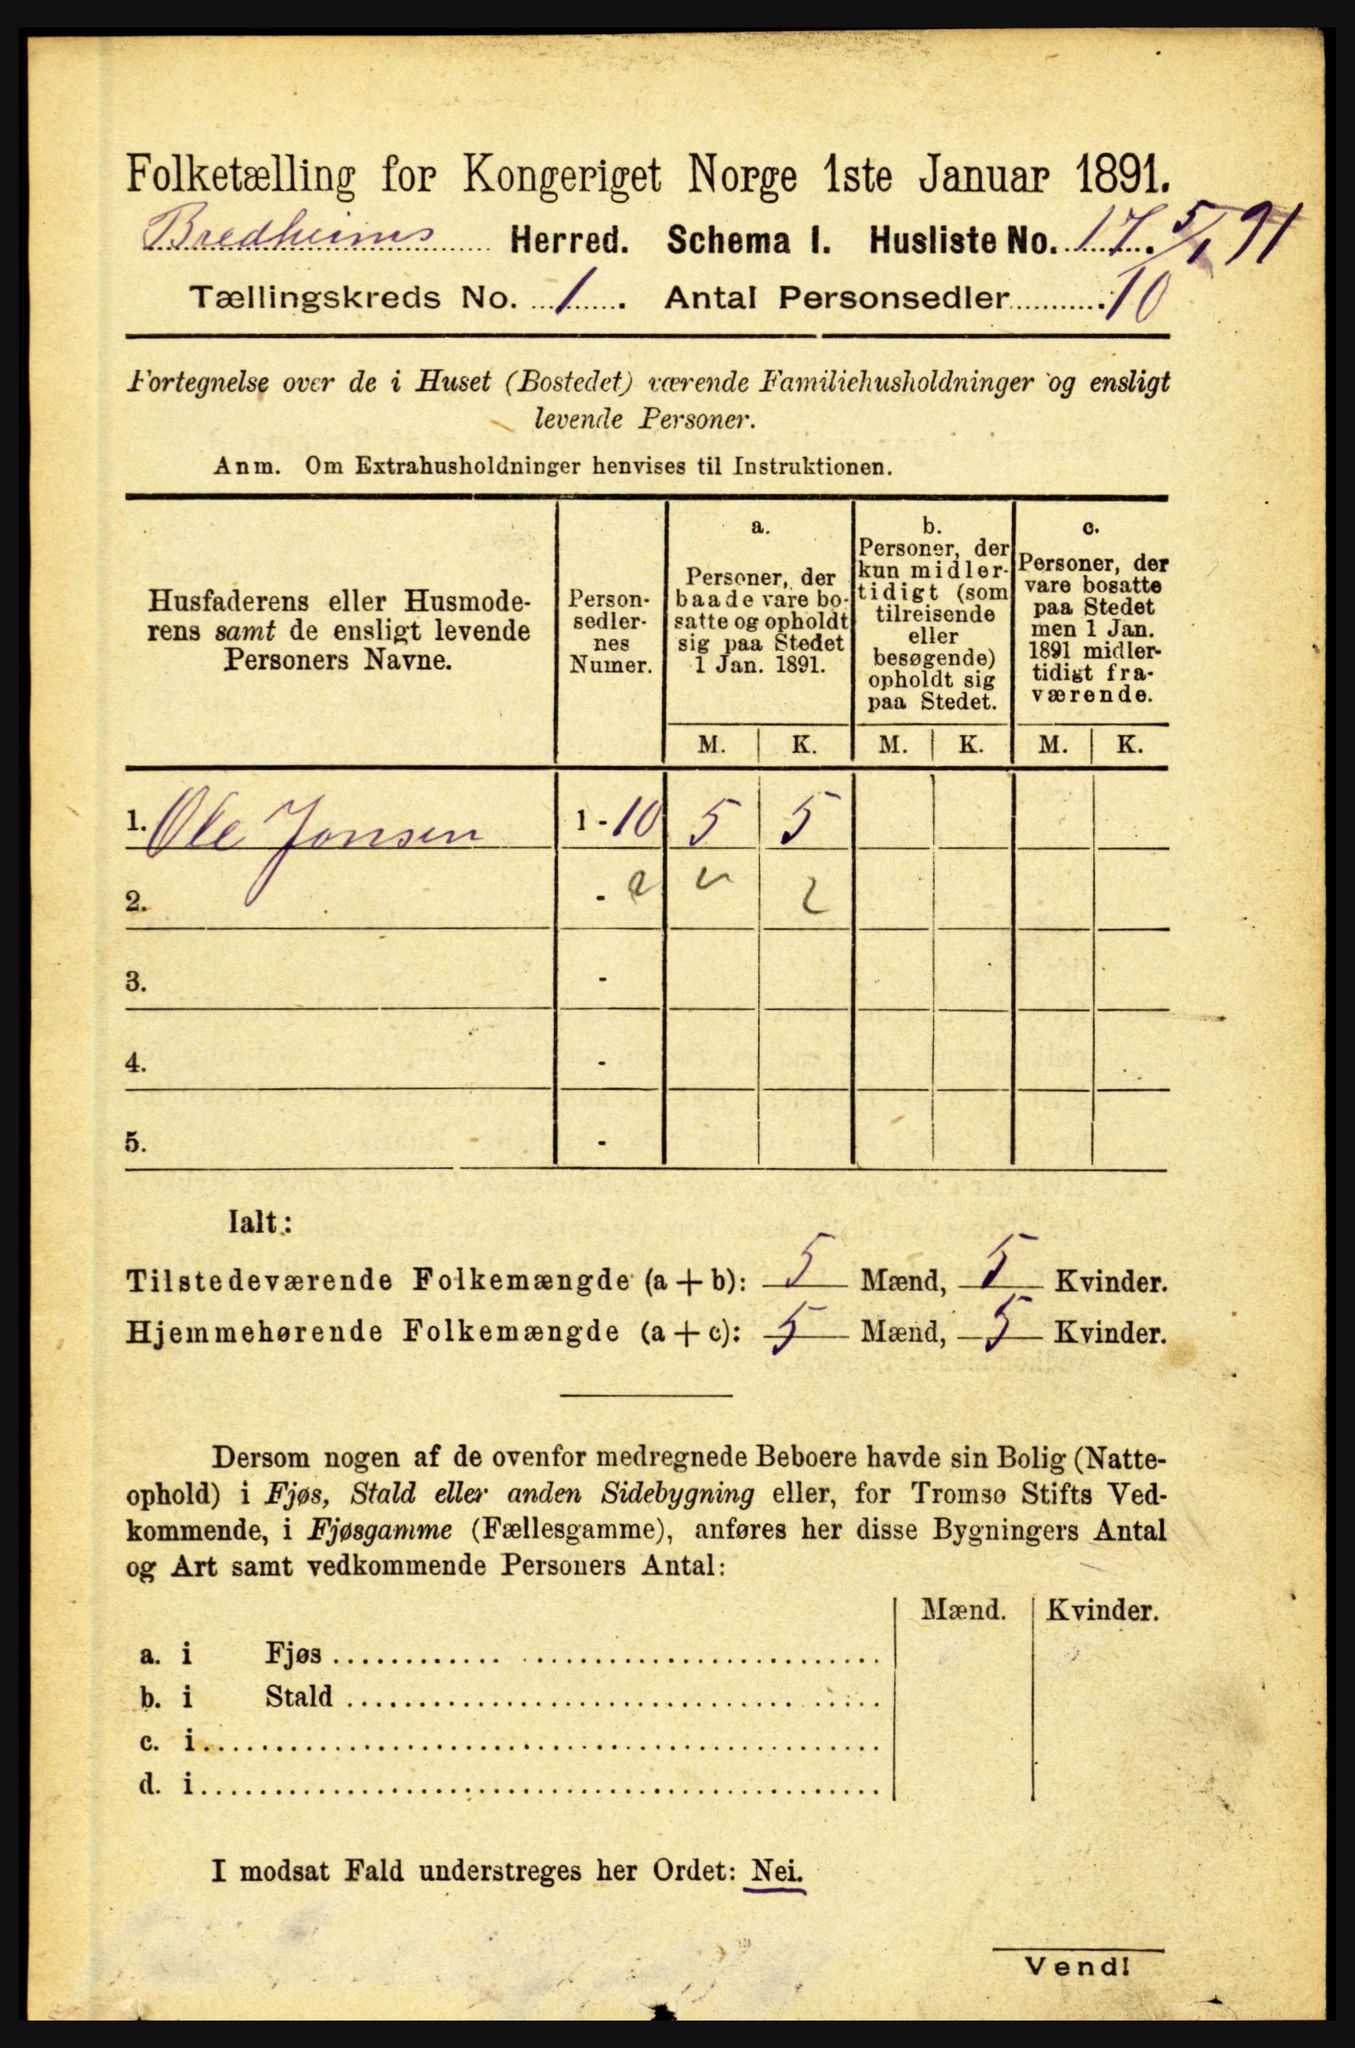 Folketælling for Kongeriget Norge 1ste Januar 1891.
Bredheims Herred. Schema I. Husliste No. 17. 5/1 91
Tællingskreds No. 1. Antal Personsedler 10
Fortegnelse over de i Huset (Bostedet) værende Familiehusholdninger og ensligt
levende Personer.
Anm. Om Extrahusholdninger henvises til Instruktionen.
Husfaderens eller Husmode-
rens samt de ensligt levende
Personers Navne.
Person-
sedler-
nes
Numer.
a.
Personer, der
baade vare bo-
satte og opholdt
sig paa Stedet
1 Jan. 1891.
b.
Personer, der
kun midler-
tidigt (som
tilreisende
eller
besøgende)
opholdt sig
paa Stedet.
c.
Personer, der
vare bosatte
paa Stedet
men 1 Jan.
1891 midler-
tidigt fra-
værende.
M. K. M. K. M. K.
1. Ole Jonsen 1 - 10 5 5
2. - 2
3. -
4. -
5. -
Ialt:
Tilstedeværende Folkemængde (a + b): 5 Mænd, 5 Kvinder.
Hjemmehørende Folkemængde (a + c): 5 Mænd, 5 Kvinder.
Dersom nogen af de ovenfor medregnede Beboere havde sin Bolig (Natte-
ophold) i Fjøs, Stald eller anden Sidebygning eller, for Tromsø Stifts Ved-
kommende, i Fjøsgamme (Fællesgamme), anføres her disse Bygningers Antal
og Art samt vedkommende Personers Antal:
Mænd. Kvinder.
a. i Fjøs
b. i Stald
c. i
d. i
I modsat Fald understreges her Ordet: Nei.
Vend!